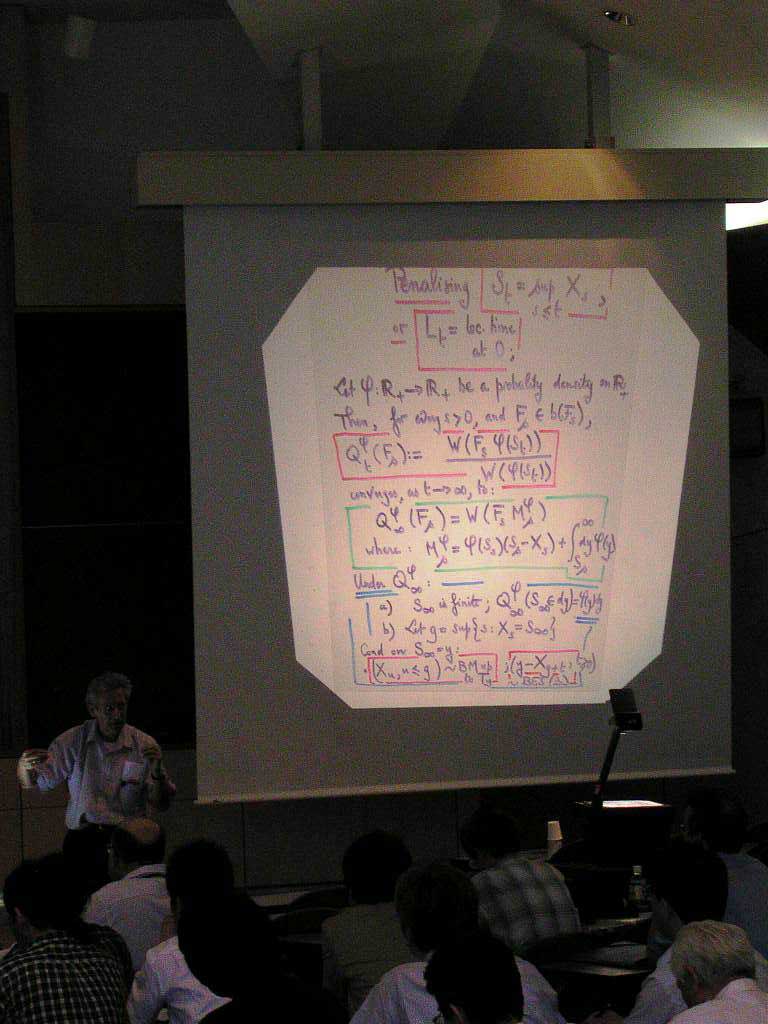 Penalising S_t = sup_{s≤t} X_s,
or L_t = loc. time
at 0;
Let φ: ℝ₊→ℝ₊ be a probality density on ℝ₊
Then, for every s>0, and F_s ∈ b(F_s),
Q_t^φ(F_s) := W(F_s φ(S_t)) / W(φ(S_t))
converges, as t→∞, to:
Q_∞^φ(F_s) = W(F_s M_s^φ)
where: M_s^φ = φ(S_s)(S_s-X_s) + ∫_{S_s}^∞ dy φ(y)
Under Q_∞^φ:
a) S_∞ is finite; Q_∞^φ(S_∞ ∈ dy) = φ(y)dy
b) Let g = sup{s: X_s = S_∞}
Cond on S_∞ = y:
(X_u, u≤g) ~ BM up to T_y; (y-X_{g+t}, t≥0)
~ BES(3)